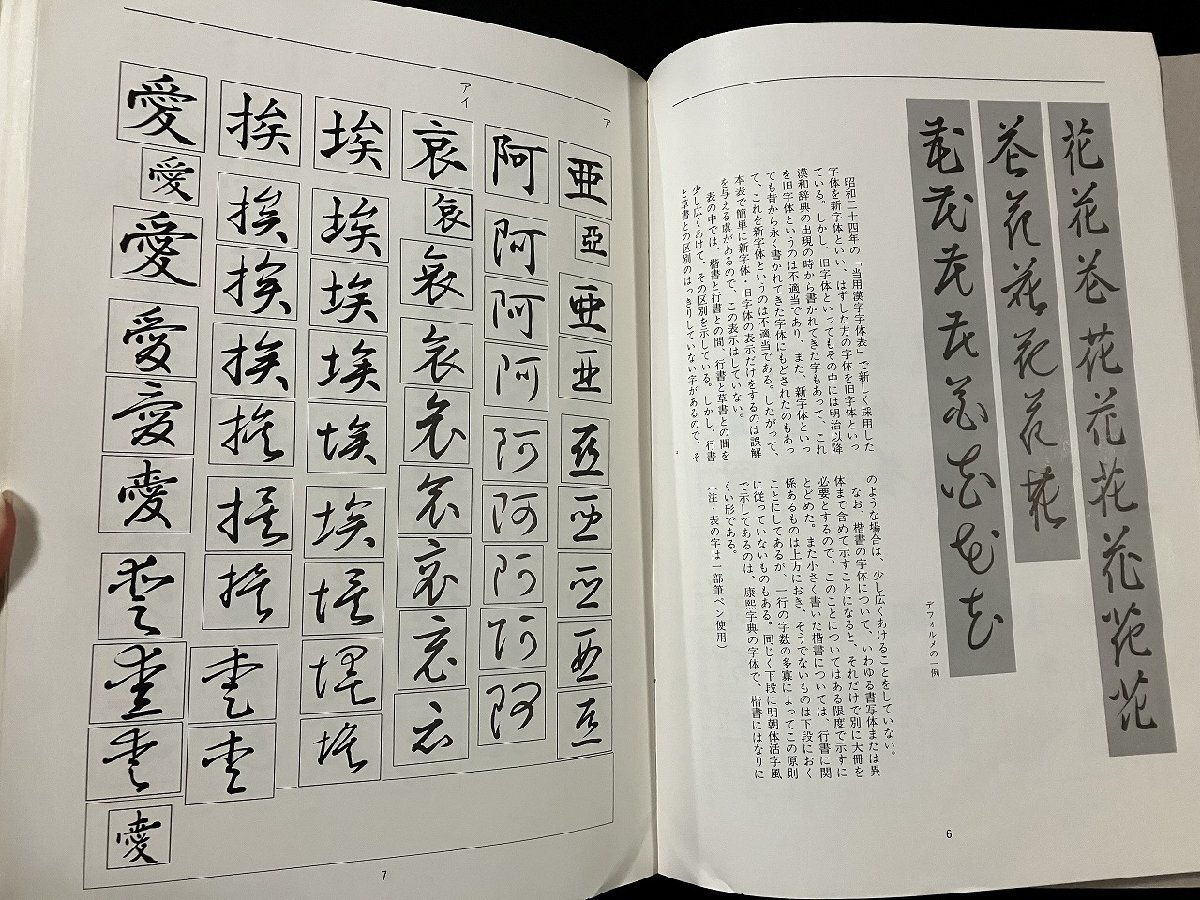 花花花花花花花花花
花花花花花花
花花花花花花花花
デフォルメの一例
昭和二十四年の「当用漢字字体表」で新しく採用した
字体を新字体といい、はずした方の字体を旧字体といっ
ている。しかし、旧字体といってもその中には明治以降
漢和辞典の出現の時から書かれてきた字もあって、これ
を旧字体というのは不適当であり、また、新字体といっ
ても昔から永く書かれてきた字体にもどされたのもあっ
て、これを新字体というのは不適当である。したがって、
本表で簡単に新字体・旧字体の表示だけをするのは誤解
を与える虞があるので、この表示はしていない。
表の中では、楷書と行書との間、行書と草書との間を
少し広くあけて、その区別を示している。しかし、行書
と草書との区別のはっきりしていない字があるので、そ
のような場合は、少し広くあけることをしていない。
なお、楷書の字体について、いわゆる書写体または異
体まで含めて示すことになると、それだけで別に大冊を
必要とするので、このことについてはある限度で示すに
とどめた。また小さく書いた楷書については、行書に関
係あるものは上方におき、そうでないものは下段におく
ことにしてあるが、一行の字数の多寡によってこの原則
に従っていないものもある。同じく下段に明朝体活字風
で示してあるのは、康煕字典の字体で、楷書にはなりに
くい形である。
(注 表の字は一部筆ペン使用)
6
ア
アイ
亜亞亜亜亜亜亜亜亜
阿阿阿阿阿阿阿阿阿
哀哀哀哀哀哀哀哀哀
埃埃埃埃埃埃埃埃埃
挨挨挨挨挨挨挨愛愛
愛愛愛愛愛愛愛愛愛愛
7